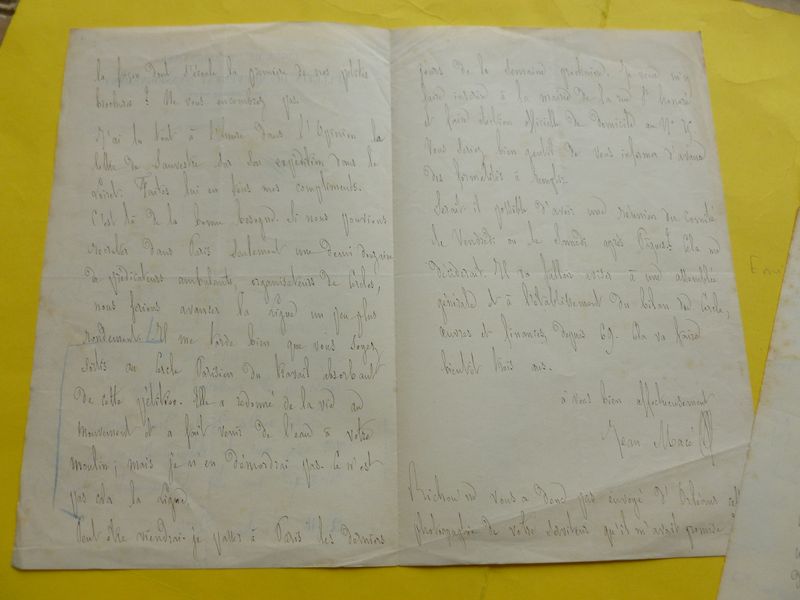 la façon dont s'écoule la première de nos petites
brochures ? Ne vous encombrez pas.
J'ai lu tout à l'heure dans l'Opinion la
lettre de Sauvestre sur son expédition dans le
Loiret. Faites lui en tous mes compliments.
C'est là de la bonne besogne. Si nous pouvions
recruter dans Paris seulement une demi douzaine
de prédicateurs ambulants, organisateurs de Cercles,
nous ferions avancer la ligue un peu plus
rondement. Il me tarde bien que vous soyez
sortis au Cercle Parisien du travail absorbant
de cette pétition. Elle a redonné de la vie au
mouvement et a fait venir de l'eau à votre
moulin ; mais je n'en démordrai pas. Ce n'est
pas cela la ligue.
Peut être viendrai-je passer à Paris les derniers
jours de la semaine prochaine. Je veux m'y
faire inscrire à la mairie de la rue St Honoré
et faire élection officielle de domicile au
Vous seriez bien gentil de vous informer d'avance
des formalités à remplir.
Serait il possible d'avoir une réunion du Comité
le Vendredi ou le Samedi après Pâques ? Cela me
déciderait. Il va falloir viser à une assemblée
générale et à l'établissement du bilan du Cercle,
œuvres et finances, depuis 69. Cela va faire
bientôt trois ans.
à vous bien affectueusement
Jean Macé
ne vous a donc pas envoyé d'Orléans cette
photographie de votre serviteur qu'il m'avait promise